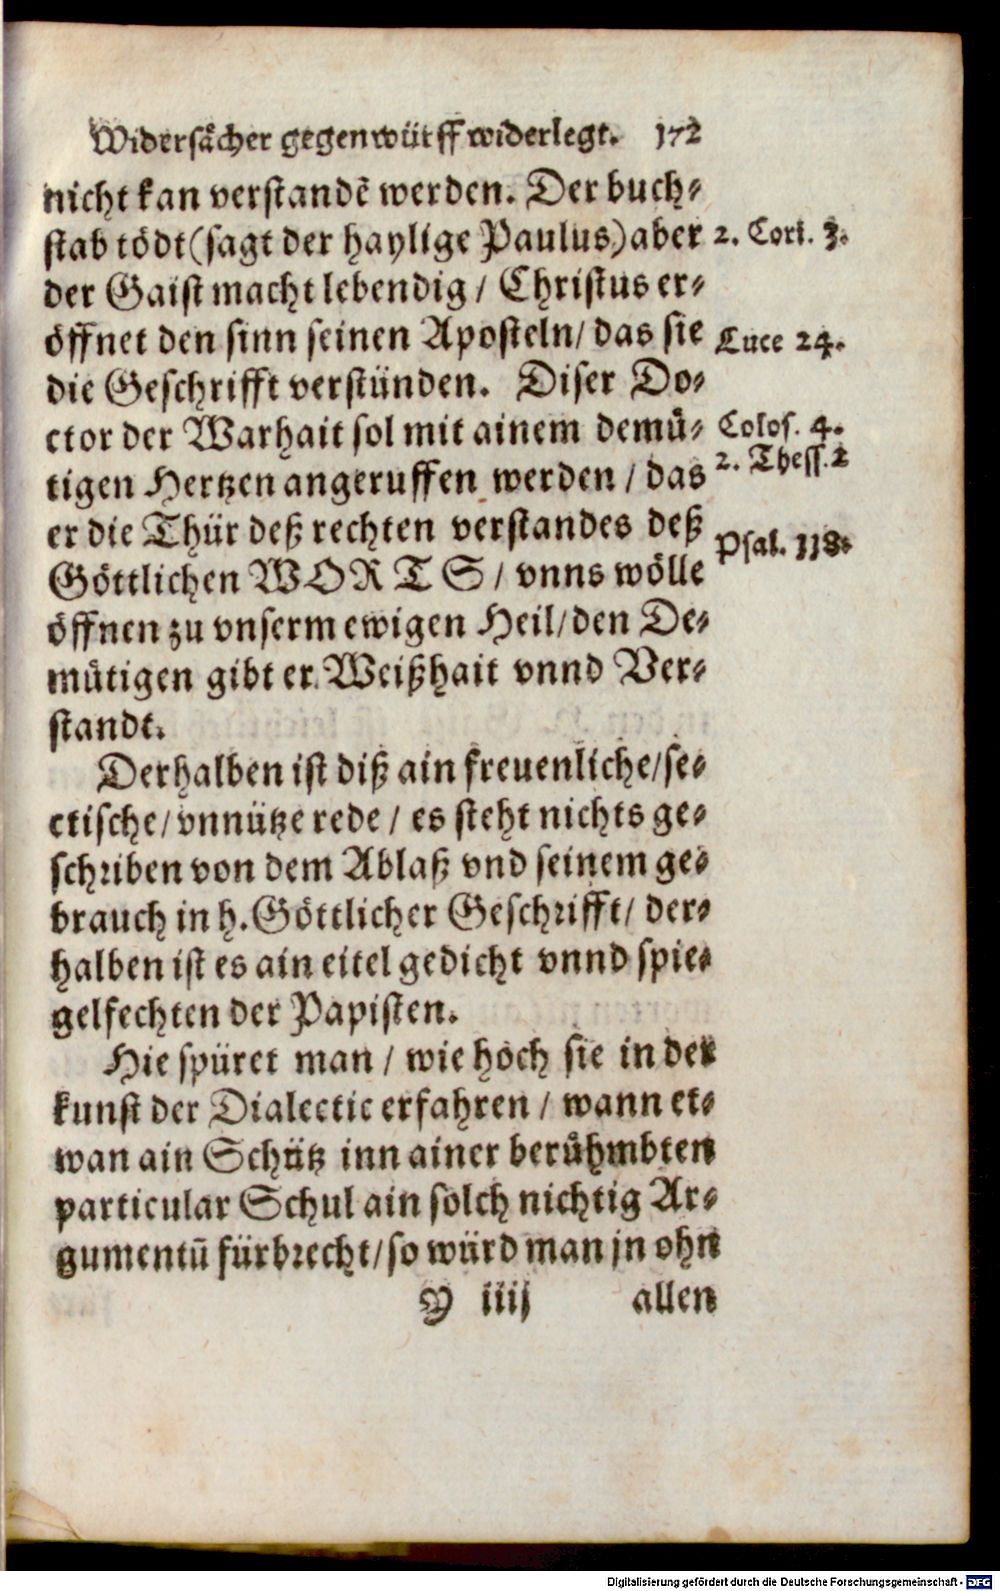 Widersächer gegenwürff widerlegt. 172
nicht kan verstandẽ werden. Der buch⸗
stab tödt (sagt der haylige Paulus) aber 2. Cori. 3.
der Gaist macht lebendig / Christus er⸗
öffnet den sinn seinen Aposteln / das sie Luce 24.
die Geschrifft verstünden. Diser Do⸗
ctor der Warhait sol mit ainem demuͤ⸗ Colos. 4.
tigen Hertzen angeruffen werden / das 2. Thess. 2
er die Thür deß rechten verstandes deß Psal. 118.
Göttlichen WORTS / vnns wölle
öffnen zu vnserm ewigen Heil / den De⸗
muͤtigen gibt er Weißhait vnnd Ver⸗
standt.
Derhalben ist diß ain freuenliche / se⸗
ctische / vnnütze rede / es steht nichts ge⸗
schriben von dem Ablaß vnd seinem ge⸗
brauch in h. Göttlicher Geschrifft / der⸗
halben ist es ain eitel gedicht vnnd spie⸗
gelfechten der Papisten.
Hie spüret man / wie hoch sie in der
kunst der Dialectic erfahren / wann et⸗
wan ain Schütz inn ainer beruͤhmbten
particular Schul ain solch nichtig Ar⸗
gumentū fürbrecht / so würd man jn ohn
Y iiij allen
Digitalisierung gefördert durch die Deutsche Forschungsgemeinschaft - DFG